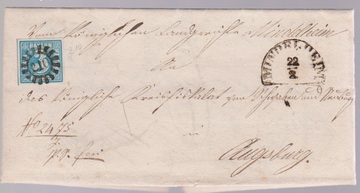 Vom Königlichen Landgerichte Mindelheim
An
das königliche Kreisfiskalat von Schwaben und Neuburg
No 2475
Augsburg.
MINDELHEIM
22
2